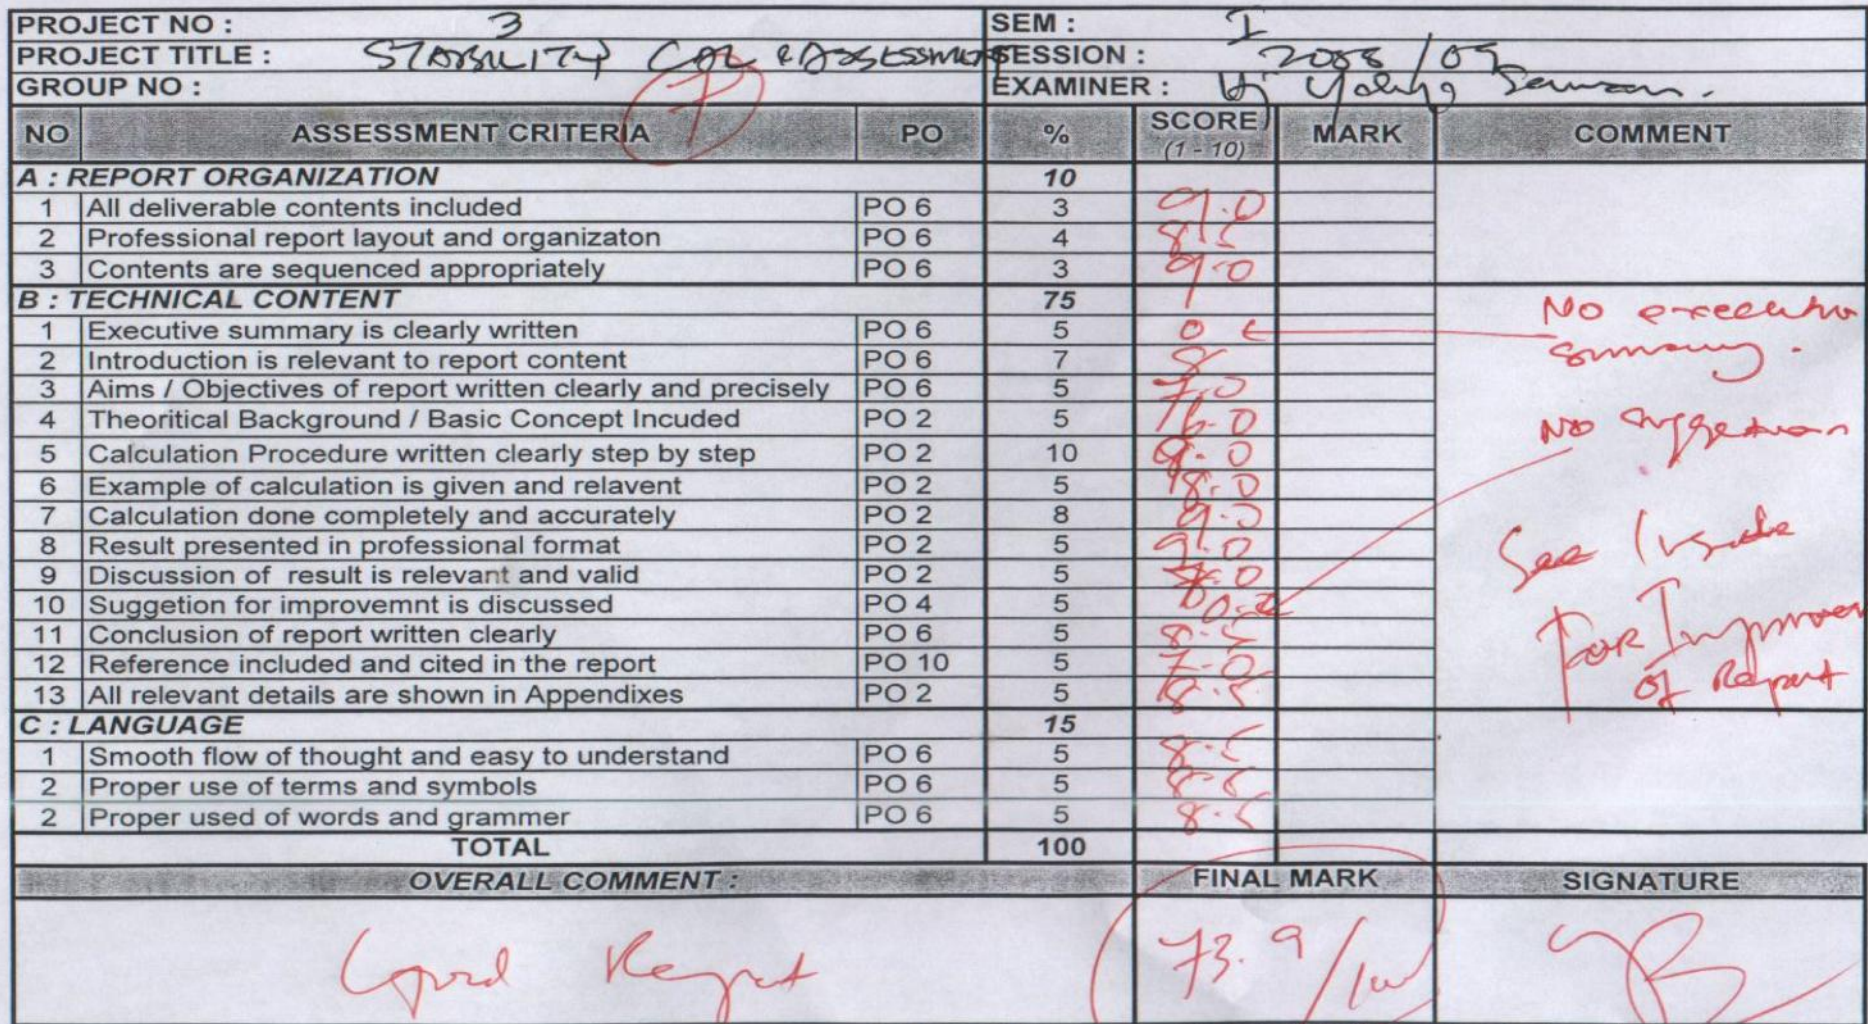 PROJECT NO : 3 SEM : I
PROJECT TITLE : STABILITY CAL & ASSESSMENT SESSION : 2008/09
GROUP NO : 7 EXAMINER : Hj Yahya Samian.
NO ASSESSMENT CRITERIA PO % SCORE (1 - 10) MARK COMMENT
A : REPORT ORGANIZATION 10
1 All deliverable contents included PO 6 3 9.0
2 Professional report layout and organizaton PO 6 4 8.5
3 Contents are sequenced appropriately PO 6 3 9.0
B : TECHNICAL CONTENT 75
1 Executive summary is clearly written PO 6 5 0 No executive summary.
2 Introduction is relevant to report content PO 6 7 8
3 Aims / Objectives of report written clearly and precisely PO 6 5 7.0
4 Theoritical Background / Basic Concept Incuded PO 2 5
5 Calculation Procedure written clearly step by step PO 2 10 9.0
6 Example of calculation is given and relavent PO 2 5 8.0
7 Calculation done completely and accurately PO 2 8 9.0
8 Result presented in professional format PO 2 5 9.0
9 Discussion of result is relevant and valid PO 2 5
10 Suggetion for improvemnt is discussed PO 4 5 No suggestion
11 Conclusion of report written clearly PO 6 5 8.5
12 Reference included and cited in the report PO 10 5 7.0
13 All relevant details are shown in Appendixes PO 2 5 8.5
See Inside
For Improvement
of Report
C : LANGUAGE 15
1 Smooth flow of thought and easy to understand PO 6 5 8.5
2 Proper use of terms and symbols PO 6 5 8.5
2 Proper used of words and grammer PO 6 5 8.5
TOTAL 100
OVERALL COMMENT : FINAL MARK SIGNATURE
Good Report 73.9/100